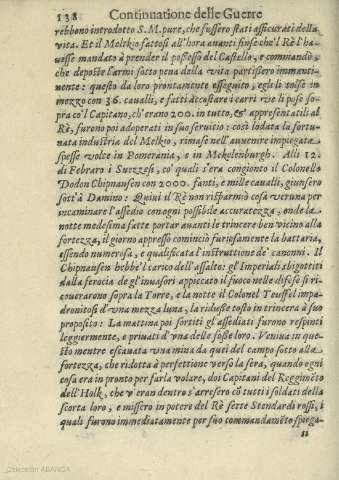 138 Continuatione delle Guerre
rebbono introdotto S. M. pure, che fussero stati assicurati della
vita. Et il Melkio fattosi all'hora auanti finse che'l Rè l'ha-
uesse mandato à prender il possesso del Castello, e commandò,
che deposte l'armi sotto pena della vita partissero immanti-
nente: questo da loro prontamente esseguito, egli li tolse in
mezzo con 36. caualli, e fatti accostare i carri ue li pose so-
pra co'l Capitano, ch'erano 200. in tutto, & appresentatili al
Rè, furono poi adoperati in suo seruitio: così lodata la fortu-
nata industria del Melkio, rimase nell'auuenire impiegata
spesse volte in Pomerania, e in Mckolenburgh. Alli 12.
di Febraro i Suezzesi, co' quali s'era congionto il Colonello
Dodon Chipnausen con 2000. fanti, e mille caualli, giunsero
sott'à Damino: Quiui il Rè non risparmiò cosa veruna per
incaminare l'assedio con ogni possibile accuratezza, onde la
notte medesima fatte portar auanti le trincere ben vicino alla
fortezza, il giorno appresso cominciò furiosamente la battaria,
essendo numerosa, e qualificata l'instruttione de' canonni. Il
Chipnausen hebbe'l carico dell'assalto: gl'Imperiali sbigottiti
dalla ferocia de gl'inuasori appiccato il fuoco nelle difese si ri-
couerarono sopra la Torre, e la notte il Colonel Teuffel impa-
dronitosi d'vna mezza luna, la ridusse tosto in trincera à suo
proposito: La mattina poi sortiti gl'assediati furono respinti
leggiermente, e priuati d'vna delle fosse loro. Veniua in que-
sto mentre escauata vna mina da quei del campo sotto alla
fortezza, che ridotta à perfettione verso la sera, quando ogni
cosa era in pronto per farla volare, doi Capitani del Reggimẽto
dell'Holk, che v'eran dentro s'arresero cõ tutti i soldati della
scorta loro, e missero in potere del Rè sette Stendardi rossi, i
quali furono immediatamente per suo commandamẽto spiega-
ti
Colección ABANCA